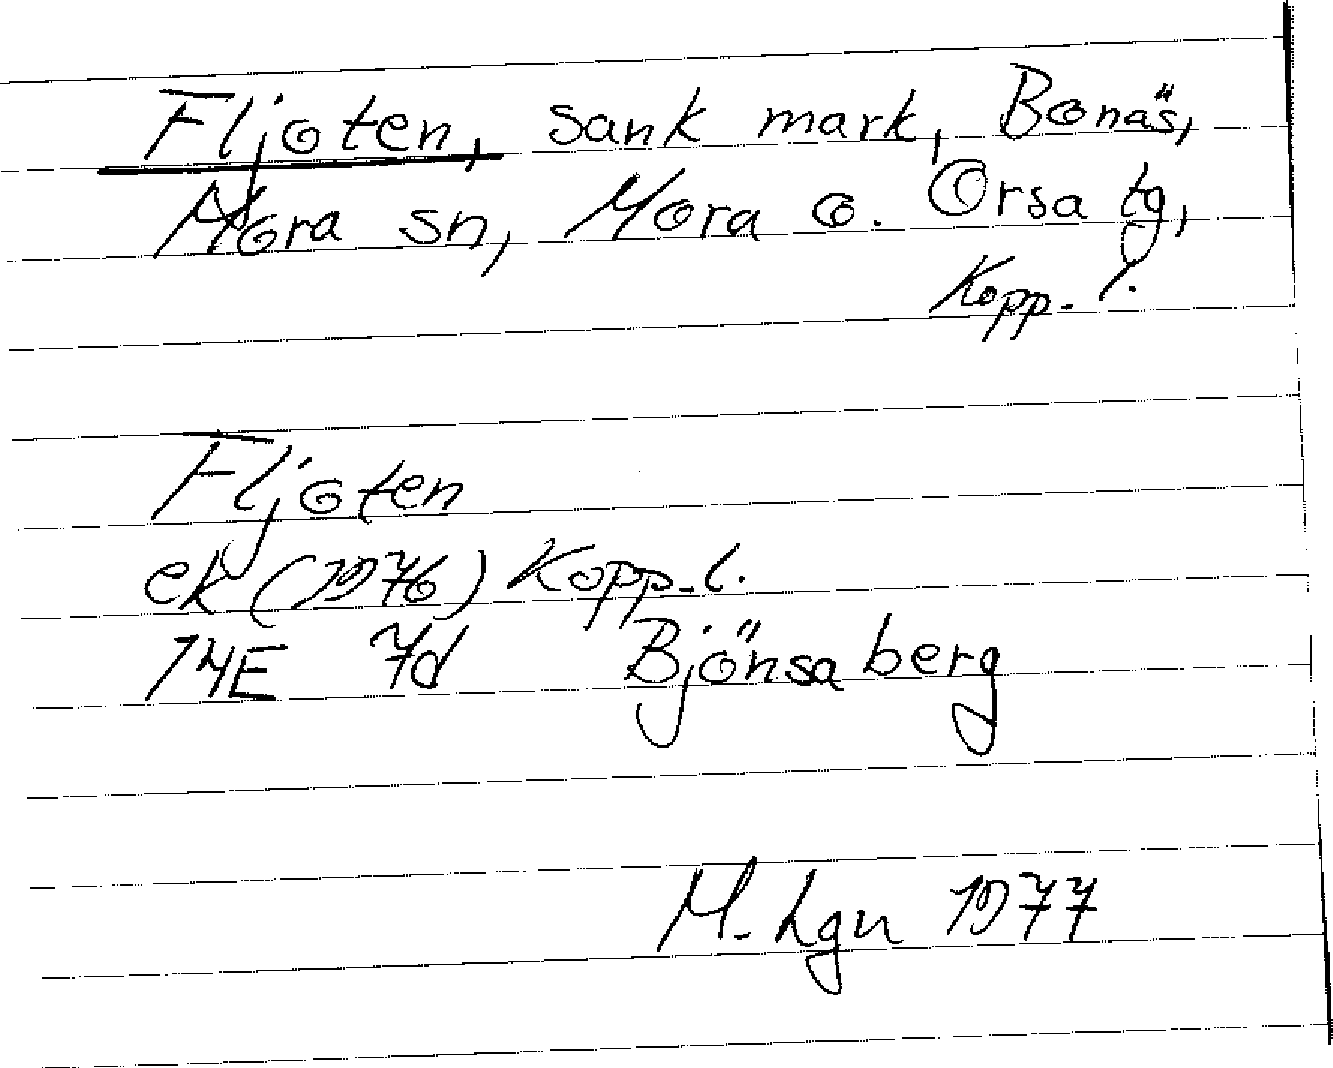 Fljoten, sank mark, Bonäs,
Mora sn, Mora o. Orsa tg,
Kopp. l.
Fljoten
ek (1976) Kopp. l.
14E 7d Bjönsaberg
M. Lgn 1977